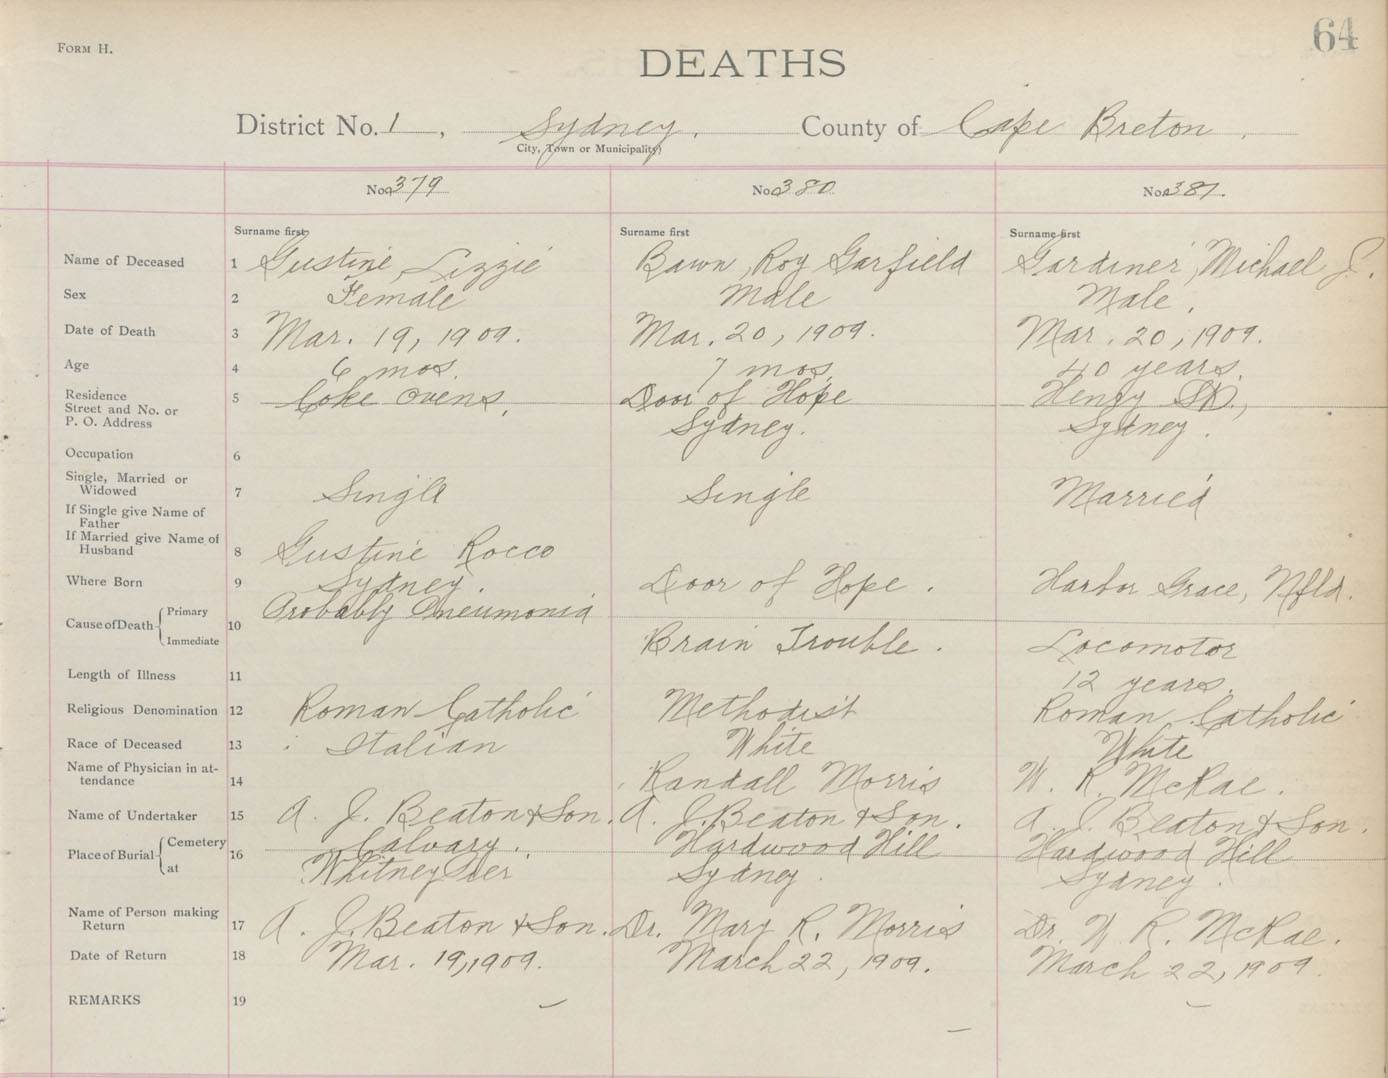 64
FORM H.
DEATHS
District No. 1, Sydney. County of Cape Breton.
City, Town or Municipality)
No. 379 No. 380 No. 381.
Surname first Surname first Surname first
Name of Deceased 1 Gustine, Lizzie Bawn, Roy Garfield Gardiner, Michael J.
Sex 2 Female Male Male.
Date of Death 3 Mar. 19, 1909. Mar. 20, 1909. Mar. 20, 1909.
Age 4 6 mos. 7 mos. 40 years.
Residence 5 Coke Ovens, Door of Hope Henry St.,
Street and No. or
P. O. Address Sydney. Sydney.
Occupation 6
Single, Married or
Widowed 7 Single Single Married
If Single give Name of
Father
If Married give Name of
Husband 8 Gustine Rocco
Where Born 9 Sydney. Door of Hope. Harbor Grace, Nfld.
Cause of Death { Primary 10 Probably Pneumonia
Immediate Brain Trouble. Locomotor
Length of Illness 11 12 years.
Religious Denomination 12 Roman Catholic Methodist Roman Catholic
Race of Deceased 13 Italian White White
Name of Physician in at-
tendance 14 Randall Morris W. R. McRae.
Name of Undertaker 15 A. J. Beaton & Son. A. J. Beaton & Son. A. J. Beaton & Son.
Place of Burial { Cemetery 16 Calvary. Hardwood Hill Hardwood Hill
at Whitney Pier Sydney. Sydney.
Name of Person making
Return 17 A. J. Beaton & Son. Dr. Mary R. Morris Dr. W. R. McRae.
Date of Return 18 Mar. 19, 1909. March 22, 1909. March 22, 1909.
REMARKS 19 – – –